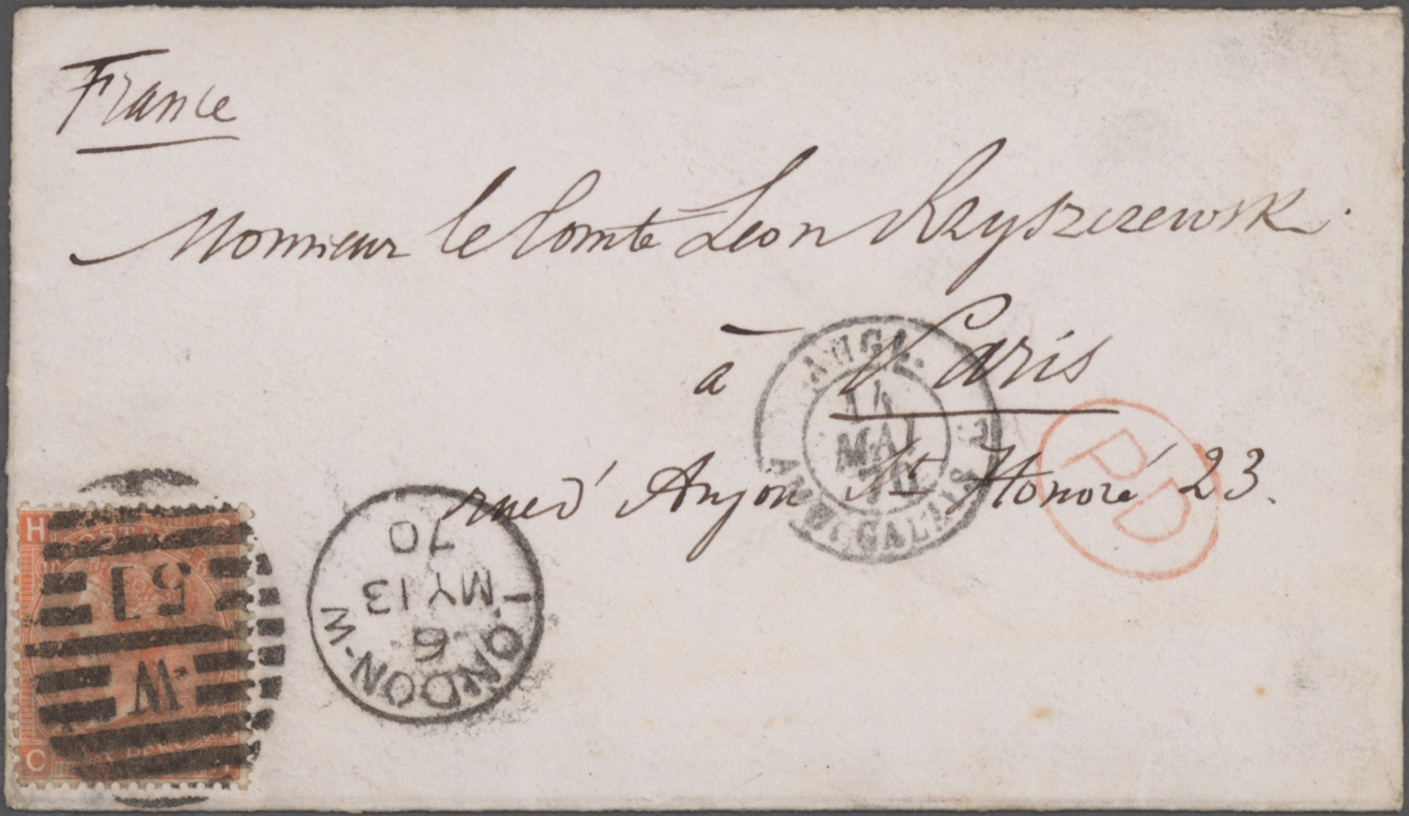 France
Monsieur le Comte Leon Rzyszczewski
à Paris
rue d'Anjou St Honoré 23.
ANGL.
14
MAI
70
CALAIS
PD
LONDON-W
6
MY 13
70
W
51
H
C